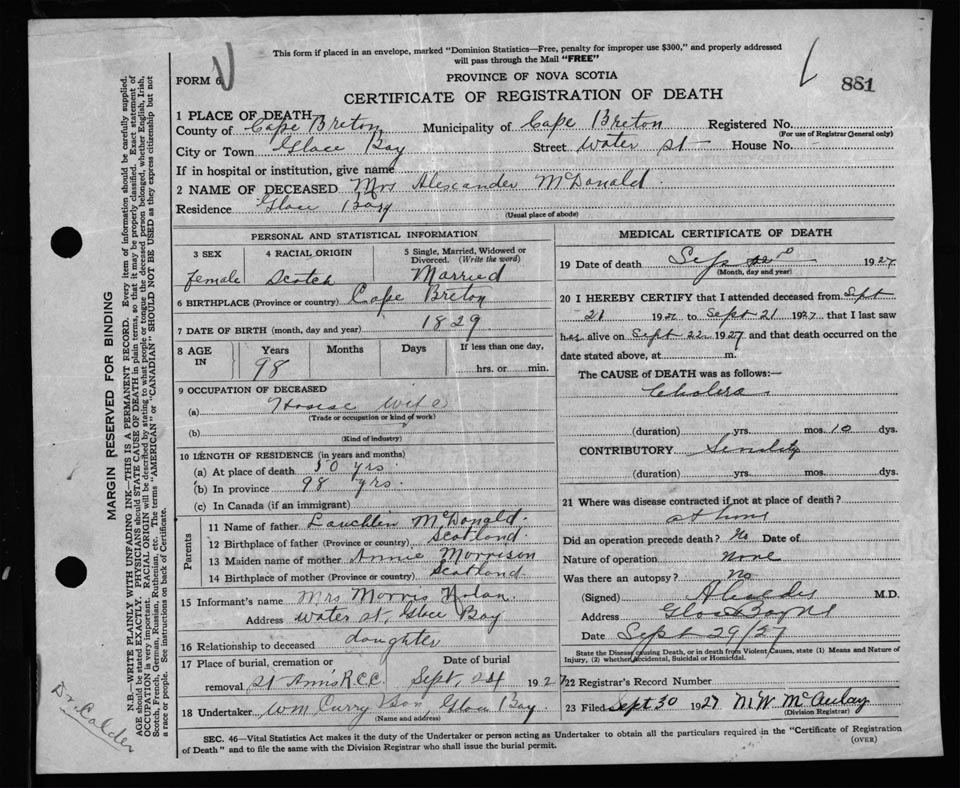 This form if placed in an envelope, marked "Dominion Statistics—Free, penalty for improper use $300," and properly addressed
will pass through the Mail "FREE"
FORM 6
PROVINCE OF NOVA SCOTIA
881
CERTIFICATE OF REGISTRATION OF DEATH
1 PLACE OF DEATH
County of Cape Breton Municipality of Cape Breton Registered No.
(For use of Registrar General only)
City or Town Glace Bay Street Water St House No. -
If in hospital or institution, give name
2 NAME OF DECEASED Mrs Alexander McDonald
Residence Glace Bay
(Usual place of abode)
PERSONAL AND STATISTICAL INFORMATION
3 SEX 4 RACIAL ORIGIN 5 Single, Married, Widowed or
Divorced. (Write the word)
Female Scotch Married
6 BIRTHPLACE (Province or country) Cape Breton
7 DATE OF BIRTH (month, day and year) 1829
8 AGE IN Years Months Days If less than one day,
98 hrs. or min.
9 OCCUPATION OF DECEASED
(a) House Wife
(Trade or occupation or kind of work)
(b)
(Kind of industry)
10 LENGTH OF RESIDENCE (in years and months)
(a) At place of death 50 yrs.
(b) In province 98 yrs.
(c) In Canada (if an immigrant)
Parents
11 Name of father Lauchlin McDonald
12 Birthplace of father (Province or country) Scotland
13 Maiden name of mother Annie Morrison
14 Birthplace of mother (Province or country) Scotland
15 Informant's name Mrs Morris Nolan
Address Water St, Glace Bay
16 Relationship to deceased daughter
17 Place of burial, cremation or Date of burial
removal St Anns R.C.C. Sept 24 1927
18 Undertaker Wm Curry & Son, Glace Bay
(Name and address)
MEDICAL CERTIFICATE OF DEATH
19 Date of death Sep 1927
(Month, day and year)
20 I HEREBY CERTIFY that I attended deceased from Sept
21 1927 to Sept 21 1927 that I last saw
her alive on Sept 22 1927 and that death occurred on the
date stated above, at m.
The CAUSE of DEATH was as follows:—
Cholera
(duration) yrs. mos. 10 dys.
CONTRIBUTORY Senility
(duration) yrs. mos. dys.
21 Where was disease contracted if not at place of death?
at home
Did an operation precede death? No Date of
Nature of operation None
Was there an autopsy? No
(Signed) M.D.
Address Glace Bay NS
Date Sept 29/27
State the Disease causing Death, or in death from Violent Causes, state (1) Means and Nature of
Injury, (2) whether Accidental, Suicidal or Homicidal.
22 Registrar's Record Number
23 Filed Sept 30 1927 M.W. McAulay
(Division Registrar)
SEC. 46—Vital Statistics Act makes it the duty of the Undertaker or person acting as Undertaker to obtain all the particulars required in the "Certificate of Registration
of Death" and to file the same with the Division Registrar who shall issue the burial permit. (OVER)
MARGIN RESERVED FOR BINDING
N.B.—WRITE PLAINLY WITH UNFADING INK—THIS IS A PERMANENT RECORD. Every item of information should be carefully supplied.
AGE should be stated EXACTLY. PHYSICIANS should STATE CAUSE OF DEATH in plain terms, so that it may be properly classified. Exact statement of
OCCUPATION is very important. RACIAL ORIGIN will be described by stating to what people or tongue the deceased person belonged, whether English, Irish,
Scotch, French, German, Russian, Ruthenian, etc. The terms "AMERICAN" or "CANADIAN" SHOULD NOT BE USED as they express citizenship but not
a race or people. See instructions on back of Certificate.
Dr. Calder